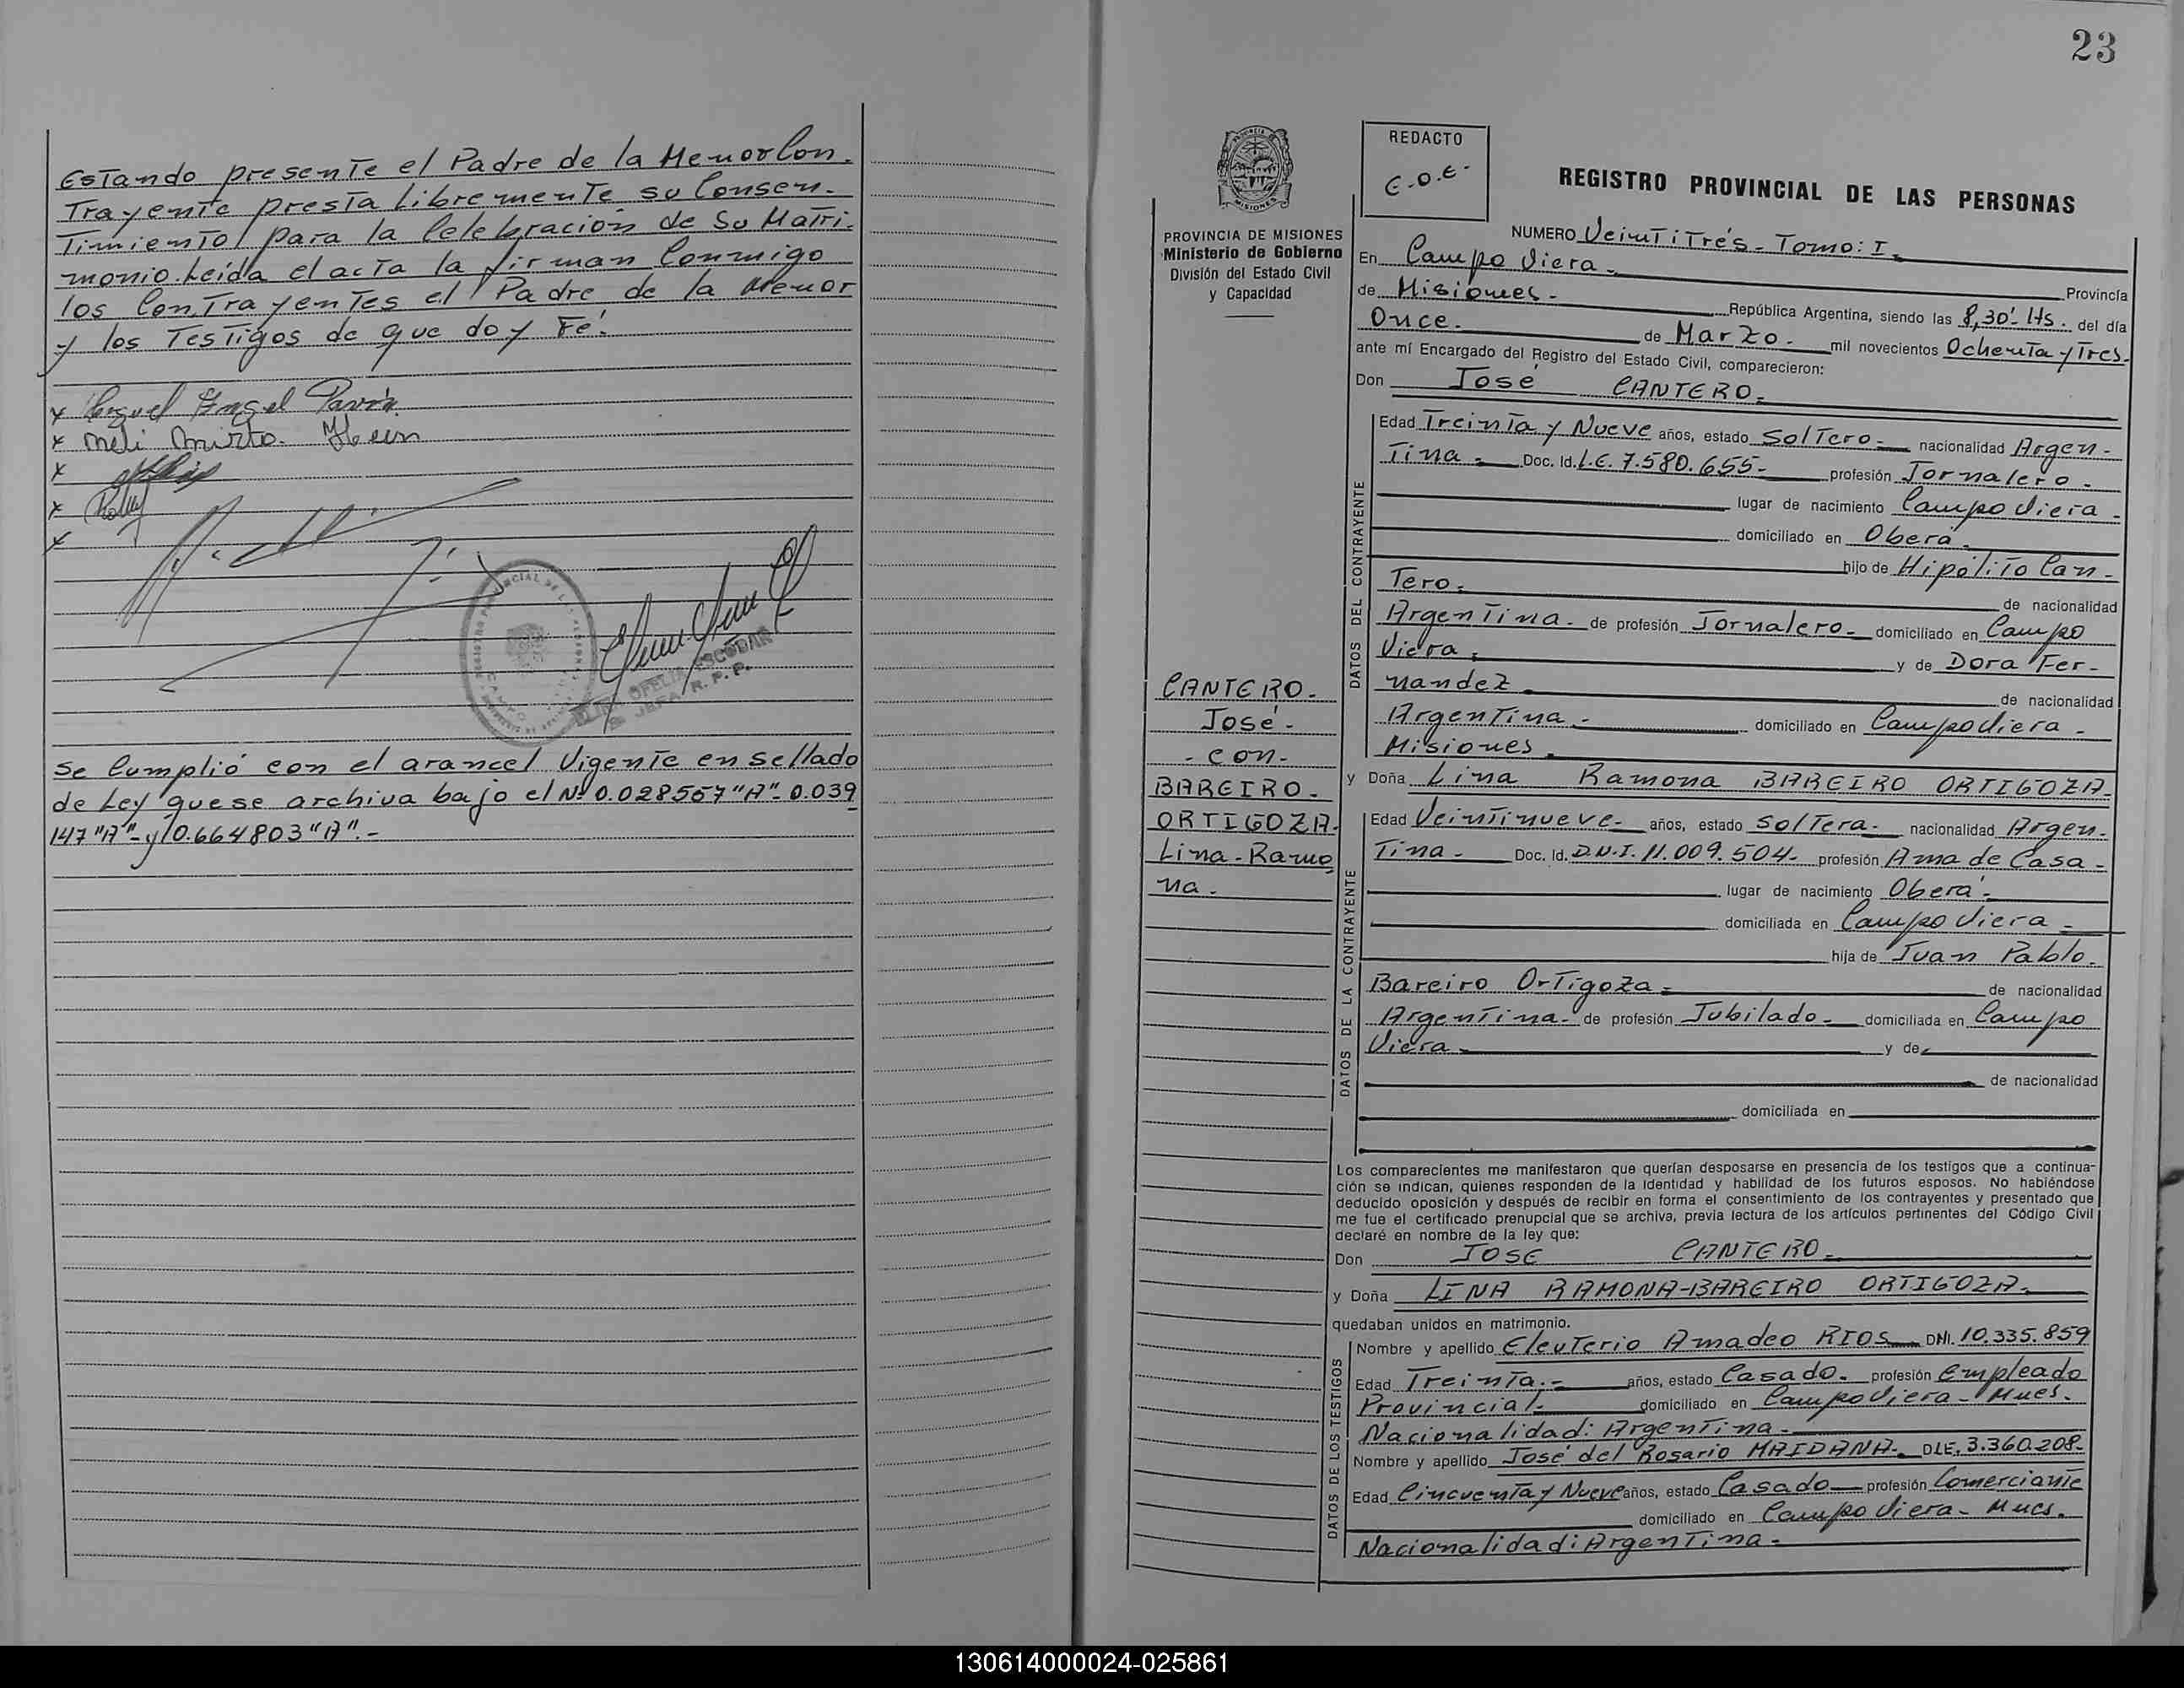 Estando presente el Padre de la Menor Con.
Trayente presta libremente su Consen.
Timiento para la Celebración de Su Matri.
monio. Leída el acta la firman Conmigo
los Contrayentes el Padre de la Menor
y los Testigos de que doy Fé.
x Miguel Angel Pavón
x Meli Mirta
x
x
x
OFELIA ESCOBAR
JEFA R. P. P.
Se Cumplió con el arancel Vigente en Sellado
de Ley que se archiva bajo el Nº 0.028567 "A"- 0.039
147 "A"- y 0.664803 "A".-
23
REDACTO
E.O.E-
REGISTRO PROVINCIAL DE LAS PERSONAS
PROVINCIA DE MISIONES
Ministerio de Gobierno
División del Estado Civil
y Capacidad
NUMERO Veintitrés- Tomo: I.
En Campo Viera- Provincia
de Misiones- República Argentina, siendo las 8,30'- Hs. del día
Once. de Marzo. mil novecientos Ochenta y Tres-
ante mí Encargado del Registro del Estado Civil, comparecieron:
Don José CANTERO-
DATOS DEL CONTRAYENTE
Edad Treinta y Nueve años, estado Soltero- nacionalidad Argen-
Tina- Doc. Id. L.E. 7.580.655- profesión Jornalero-
lugar de nacimiento Campo Viera-
domiciliado en Oberá-
hijo de Hipólito Can-
Tero- de nacionalidad
Argentina- de profesión Jornalero- domiciliado en Campo
Viera, y de Dora Fer-
nandez- de nacionalidad
Argentina- domiciliado en Campo Viera-
Misiones.
CANTERO-
José-
- con-
BAREIRO-
ORTIGOZA-
Lina-Ramo
na-
y Doña Lina Ramona BAREIRO ORTIGOZA-
DATOS DE LA CONTRAYENTE
Edad Veintinueve- años, estado Soltera- nacionalidad Argen-
Tina- Doc. Id. D.N.I. 11.009.504- profesión Ama de Casa-
lugar de nacimiento Oberá-
domiciliada en Campo Viera-
hija de Juan Pablo-
Bareiro Ortigoza- de nacionalidad
Argentina- de profesión Jubilado- domiciliada en Campo
Viera- y de
de nacionalidad
domiciliada en
Los comparecientes me manifestaron que querían desposarse en presencia de los testigos que a continua-
ción se indican, quienes responden de la identidad y habilidad de los futuros esposos. No habiéndose
deducido oposición y después de recibir en forma el consentimiento de los contrayentes y presentado que
me fue el certificado prenupcial que se archiva, previa lectura de los artículos pertinentes del Código Civil
declaré en nombre de la ley que:
Don JOSE CANTERO-
y Doña LINA RAMONA-BAREIRO ORTIGOZA-
quedaban unidos en matrimonio.
DATOS DE LOS TESTIGOS
Nombre y apellido Eleuterio Amadeo RIOS- DNI. 10.335.859
Edad Treinta.- años, estado Casado- profesión Empleado
Provincial- domiciliado en Campo Viera- Mnes.
Nacionalidad: Argentina-
Nombre y apellido José del Rosario MAIDANA- DLE. 3.360.208-
Edad Cincuenta y Nueve años, estado Casado- profesión Comerciante
domiciliado en Campo Viera- Mnes.
Nacionalidad: Argentina-
130614000024-025861